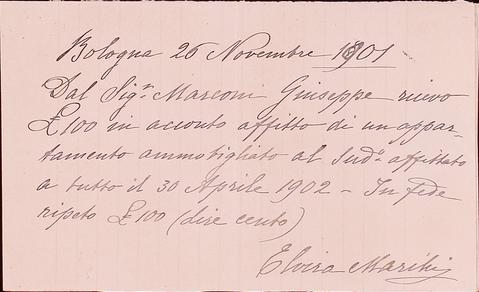 Bologna 26 Novembre 1901
Dal Sigr. Marconi Giuseppe ricevo
£100 in acconto affitto di un appar-
tamento ammobigliato al Sudo. affittato
a tutto il 30 Aprile 1902 - In fede
ripeto £100 (dire cento)
Elvira